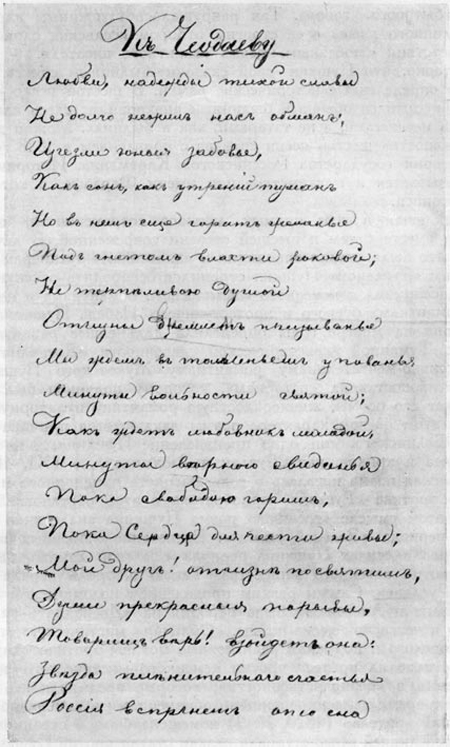 Къ Чеодаеву
Любви, надежды тихой славы
Не долго нежилъ насъ обманъ,
Изчезли юныя забовье,
Какъ сонъ, какъ утреній туманъ
Но въ насъ еще горитъ желанье
Подъ гнетомъ власти роковой;
Не терпаливою душой
Отчизны внемлетъ призыванье
Ми ждемъ въ томленьемъ упованья
Минуты вольности святой;
Какъ ждетъ любовникъ молодой
Минуты вернаго свиданья
Пока свабодою горимъ,
Пока Сердца для чести живы;
Мой другъ! отчизне посвятимъ,
Души прекрасныя порывы,
Товарищъ верь! взойдетъ она:
Звезда пленительнаго счастья
Россія вспрянетъ ото сна